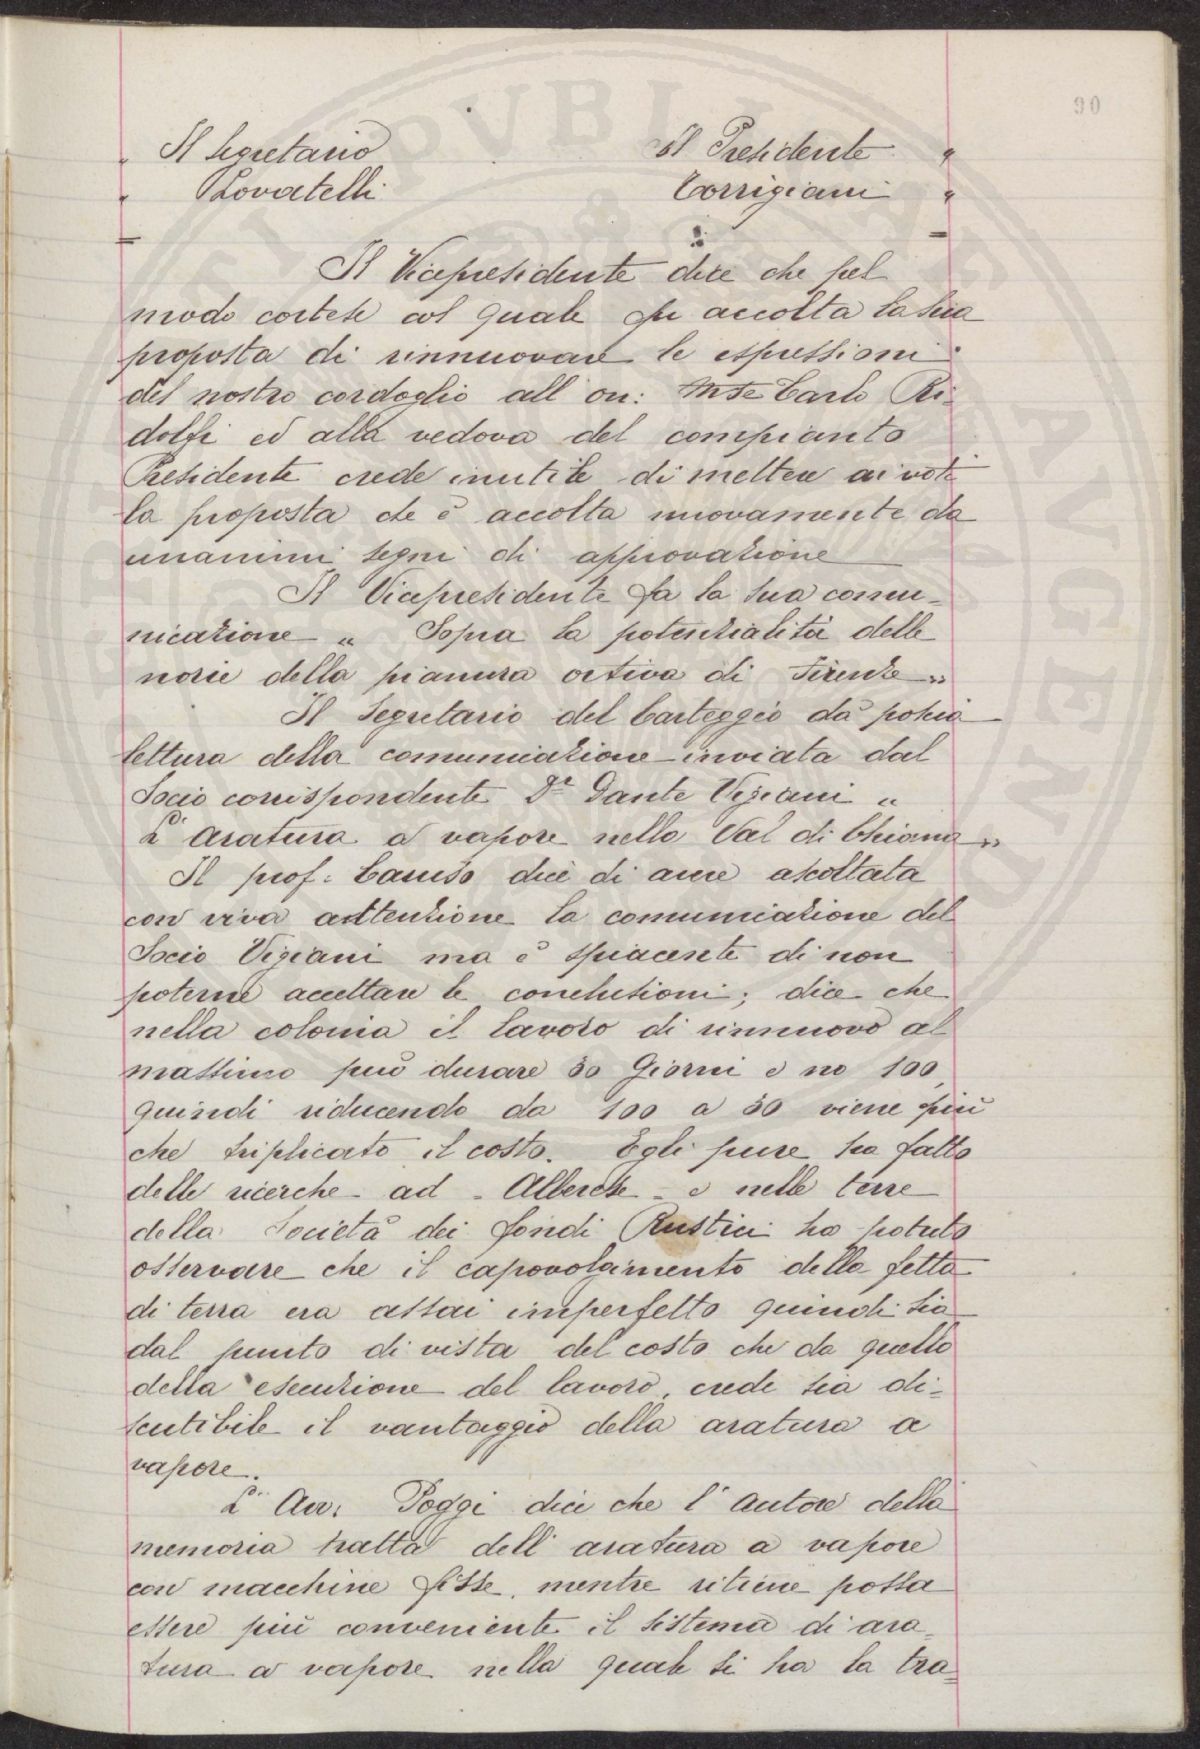 90
„ Il Segretario Il Presidente „
„ Lovatelli Torrigiani „
Il Vicepresidente dice che pel
modo cortese col quale fu accolta la sua
proposta di rinnuovare le espressioni
del nostro cordoglio all on: Mse Carlo Ri-
dolfi ed alla vedova del compianto
Presidente crede inutile di mettere ai voti
la proposta che è accolta nuovamente da
unanimi segni di approvazione
Il Vicepresidente fa la sua comu-
nicazione „ Sopra la potenzialità delle
norie della pianura ortiva di Firenze „
Il Segretario del Carteggio dà poscia
lettura della comunicazione inviata dal
Socio corrispondente Dr Dante Vigiani „
L'aratura a vapore nella Val di Chiana „
Il prof: Caruso dice di avere ascoltata
con viva attenzione la comunicazione del
Socio Vigiani ma è spiacente di non
poterne accettare le conclusioni; dice che
nella colonia il lavoro di rinnuovo al
massimo può durare 30 Giorni e no 100,
quindi riducendo da 100 a 30 viene più
che triplicato il costo. Egli pure ha fatto
delle ricerche ad - Alberese - e nelle terre
della Società dei fondi Rustici ha potuto
osservare che il capovolgimento della fetta
di terra era assai imperfetto quindi sia
dal punto di vista del costo che da quello
della esecuzione del lavoro, crede sia di-
scutibile il vantaggio della aratura a
vapore.
L'Avv: Poggi dice che l'autore della
memoria tratta dell'aratura a vapore
con macchine fisse, mentre ritiene possa
essere più conveniente il sistema di ara-
tura a vapore nella quale si ha la tra-